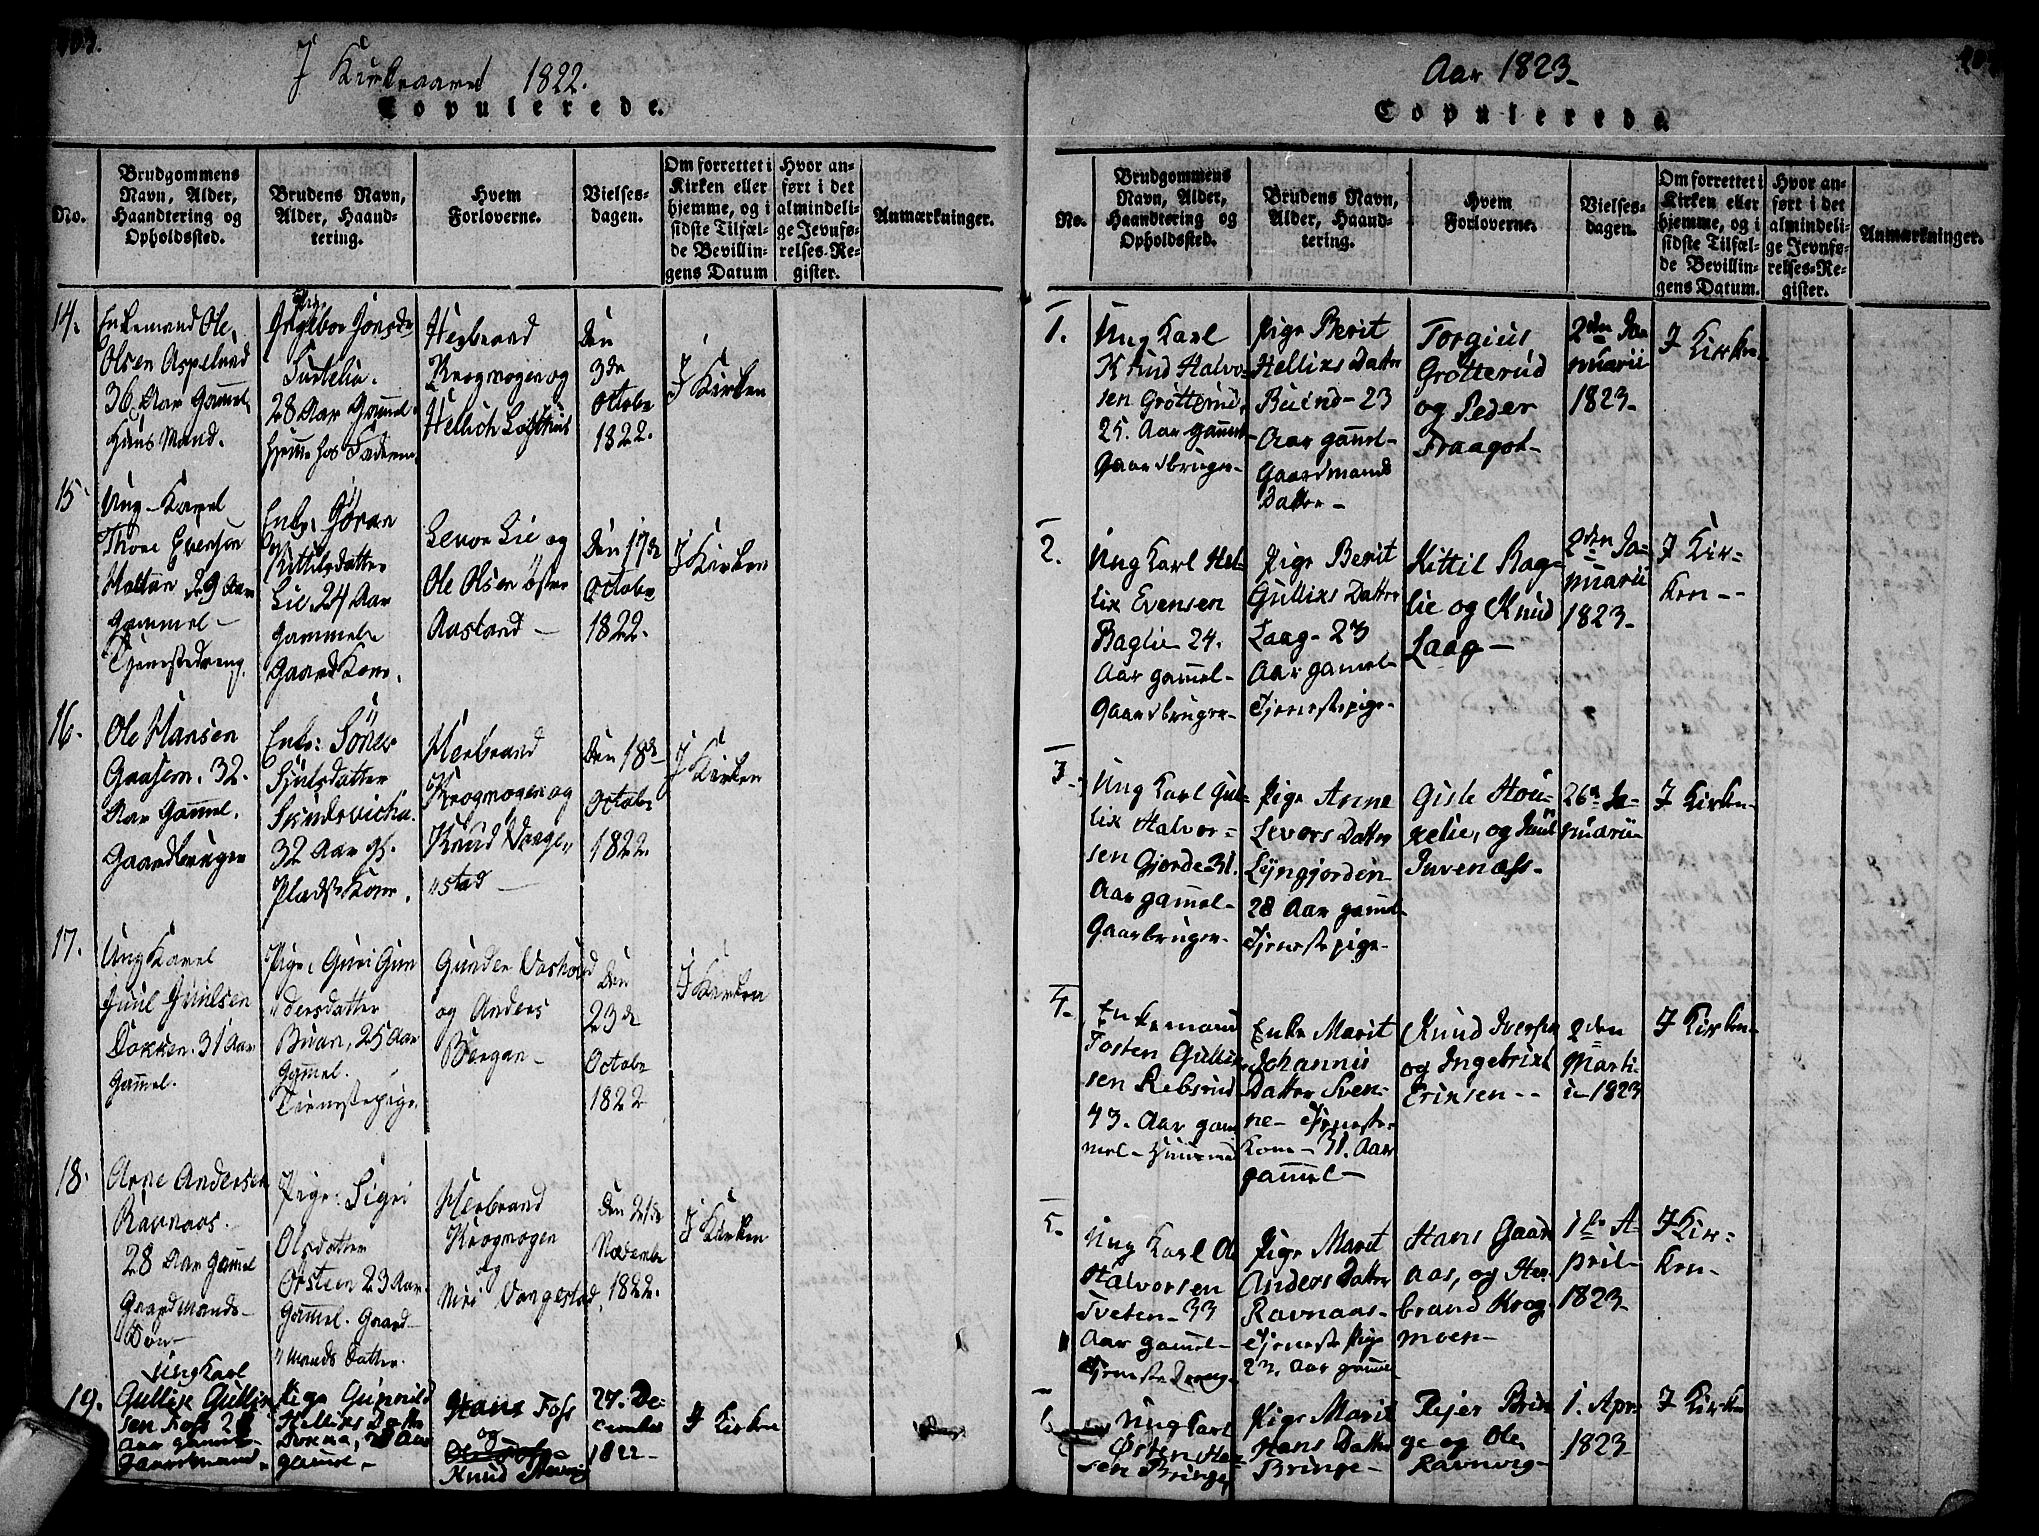 I Kirkeaaret 1822.
Copulerede.
No.
Brudgommens Navn, Alder, Haandtering og Opholdssted.
Brudens Navn, Alder, Haandtering.
Hvem Forloverne.
Vielsesdagen.
Om forrettet i Kirken eller hjemme, og i sidste Tilfælde Bevillingens Datum
Hvor anført i det almindelige Jevnførelses-Register.
Anmærkninger.
14.
Enkemand Ole
Olsen Aspelund
36 Aar Gammel
Huus Mand.
Pige
Ingebor Jonsd
28 Aar Gammel
hjemme hos Faderen
Herbrand
Krogmogen og
Hellich
Den
3de
Octobr
1822.
I Kirken
15
Ung-Karel
Thore Evensen
29 Aar
Gammel -
Tjenestedreng.
Enke: Göran
Kittilsdatter
Lie 24 Aar
Gammel
Gaard Kone.
Levor Lie og
Ole Olsen Öster
Aasland -
Den 17de
Octobr
1822.
I Kirken
16.
Ole Hansen
32.
Aar Gammel.
Gaardbruger
Enke: Sönev
32 Aar gl.
Plads Kone.
Herbrand
Krogmogen og
Knud Vange„
„stad -
Den 18de
Octobr
1822
I Kirken
17.
Ung Karel
Juul Juulsen
Dokken. 31 Aar
Gammel.
Pige: Guri Gun
„dersdatter
Bruan, 25 Aar
Gammel.
Tienestepige.
Gunder
og Anders
Bergan -
Den
23de
Octobr
1822
I Kirken
18.
Arne Andersen
Ravnaas.
28 Aar gammel
Gaardmands-
Søn -
Pige: Sigri
Olsdatter
Orsteen 23 Aar
Gammel. Gaard-
„mands Datter.
Herbrand
Krogmogen
og
Vangestad
Den 21de
Novembr
1822.
I Kirken
19.
Ung Karl
Gullik Gullik
sen Foss 28
Aar gammel
Gaardmand.
Pige Gunnild
Helliks Datter
28 Aar
gammel -
Hans Foss
og
Knud
27. De-
cember
1822 -
I Kirken
Aar 1823-
Copulerede
No.
Brudgommens Navn, Alder, Haandtering og Opholdssted.
Brudens Navn, Alder, Haandtering.
Hvem Forloverne.
Vielsesdagen.
Om forrettet i Kirken eller hjemme, og i sidste Tilfælde Bevillingens Datum.
Hvor anført i det almindelige Jevnførelses-Register.
Anmærkninger.
1.
Ung Karl
Knud Halvor
sen Grötterud,
25. Aar gammel
Gaardbruger-
Pige Berit
Helliks Datter
Buind- 23
Aar gammel-
Gaardmands
Datter-
Torgius
Grötterud
og Peder
Praagot-
2den Ja-
nuarii
1823-
I Kirken
2.
Ung Karl Hel-
lik Evensen
Baglie- 24.
Aar gammel-
Gaardbruger-
Pige Berit
Gulliks Datter
Laag- 23
Aar gamel-
Tjenestepige-
Kittil Bag-
lie og Knud
Laag-
2den Ja-
nuarii
1823-
I Kir-
ken--
3.
Ung Karl Gul-
lik Halvor-
sen Gjorde 31.
Aar gammel-
Gaarbruger-
Pige Anne
Levors Datter
Lyngjorden
28 Aar gamel-
Tjenestepige-
Gisle Hou-
kelie, og Juul
Juvenæss-
26n Ja-
nuarii-
I Kirken
4.
Enkemand
Tosten Gullik
sen Rebsrud
43. Aar gam
mel- Huusmand
Enke Marit
Johannis
Datter Sven-
ne- Tjeneste
Kone- 31. Aar
gammel-
Knud Iversen
og Ingebrikt
Erinsen--
2den
Marti-
i- 1823
I Kirken-
5.
Ung Karl Ole
Halvorsen
Tveten- 33
Aar gammel-
Tjeneste Dreng-
Pige Marit
Anders Datter
Ravnaas-
Tjeneste Pige
22. Aar gammel
Hans Gaard
aas, og Her-
brand Krog-
moen-
1ste A-
pril-
1823-
I Kir-
ken-
6
Ung Karl
Østen Han-
sen Bringe,
Pige Marit
Hans Datter
Bringe-
Pejer Brin
ge og Ole
Ravnvig-
1. Apr.
1823
I Kirken